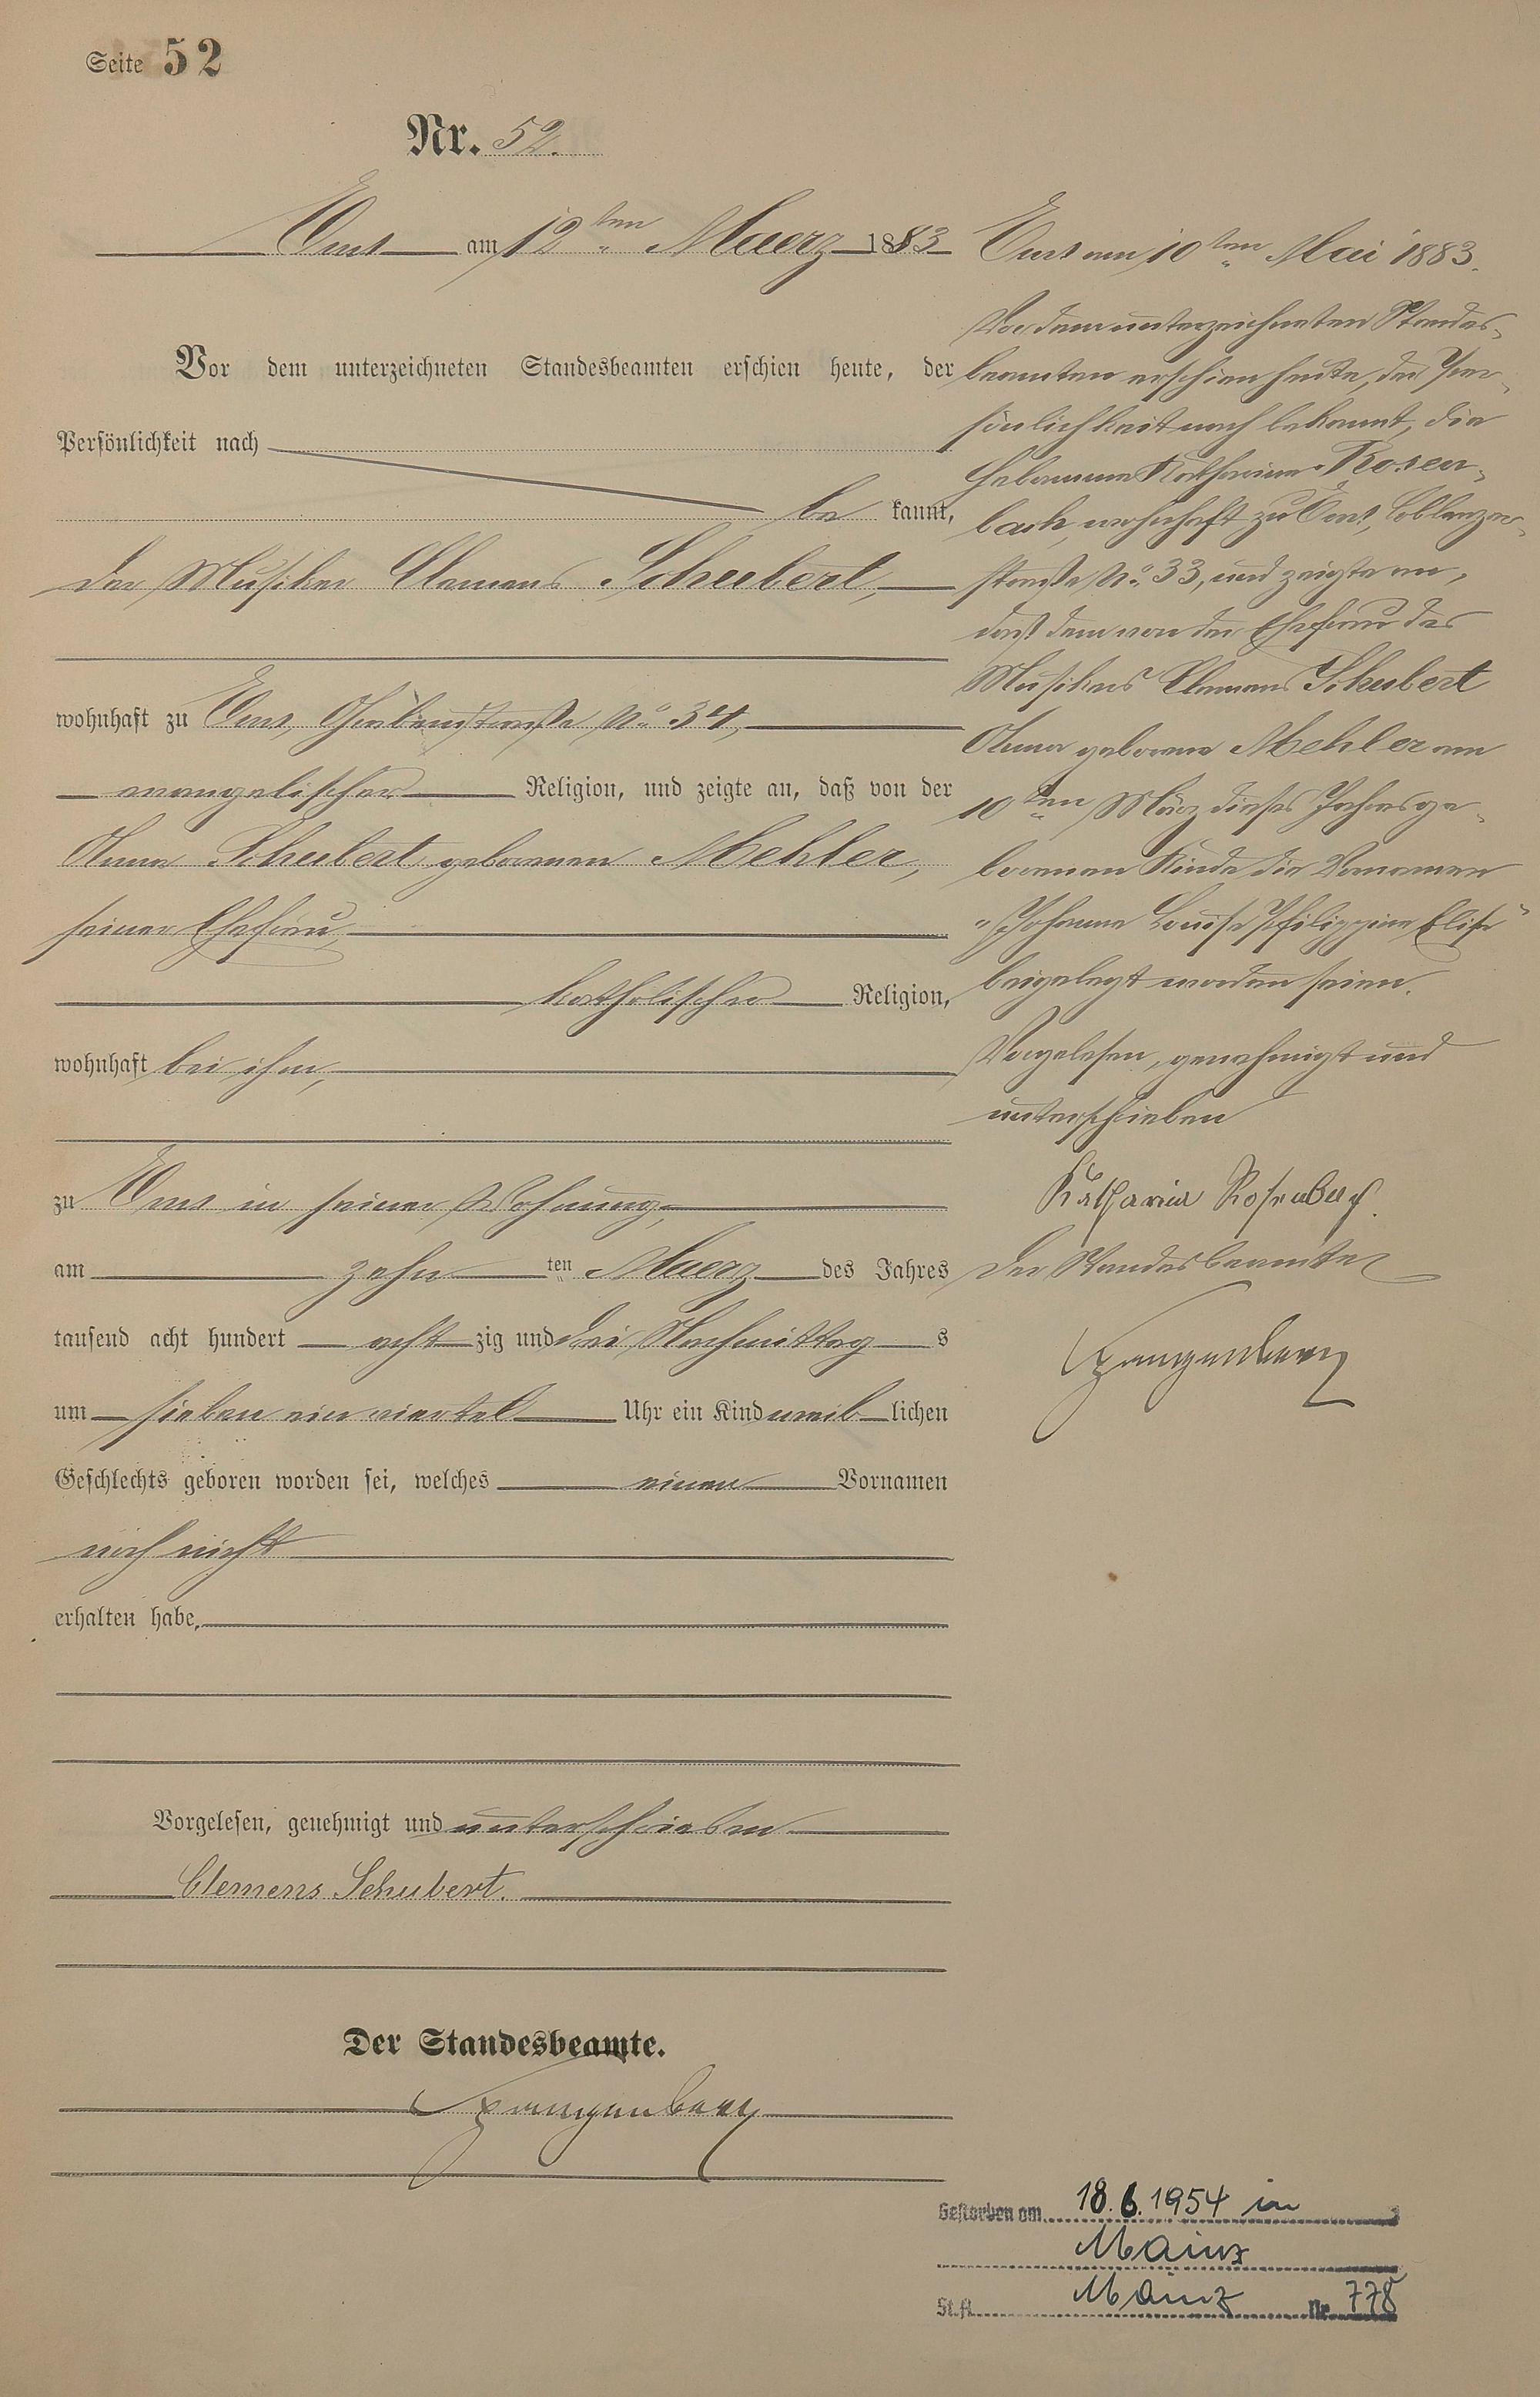 Seite 52
Nr. 52.
Ems am 12ten Maerz 1883
Vor dem unterzeichneten Standesbeamten erschien heute, der
Persönlichkeit nach
be kannt,
der Musiker Clemens Schubert,
wohnhaft zu Ems, No 34,
evangelischer Religion, und zeigte an, daß von der
Anna Schubert geborenen Mehler,
seiner Ehefrau,
katholischer Religion,
wohnhaft bei ihm,
zu Ems in seiner Wohnung,
am zehn ten Maerz des Jahres
tausend acht hundert acht zig und drei Nachmittag s
um sieben ein viertel Uhr ein Kind weib lichen
Geschlechts geboren worden sei, welches einen Vornamen
noch nicht
erhalten habe.
Vorgelesen, genehmigt und unterschrieben
Clemens Schubert.
Der Standesbeamte.
Ems am 10ten Mai 1883.
Vor dem unterzeichneten Standes-
beamten erschien heute, der Per-
sönlichkeit nach bekannt, die
Hebamme Katharina Rosen-
bach, wohnhaft zu Ems, Coblenzer-
straße No 33, und zeigte an,
daß dem von der Ehefrau des
Musikers Clemens Schubert
Anna geborene Mehler am
10ten März dieses Jahres ge-
borenen Kinde die Vornamen
"Johanna Louise Philippine Elise"
beigelegt worden seien.
Vorgelesen, genehmigt und
unterschrieben
Katharina Rosenbach.
Der Standesbeamte
Gestorben am 18.6.1954 in
Mainz
St.A. Mainz Nr. 778